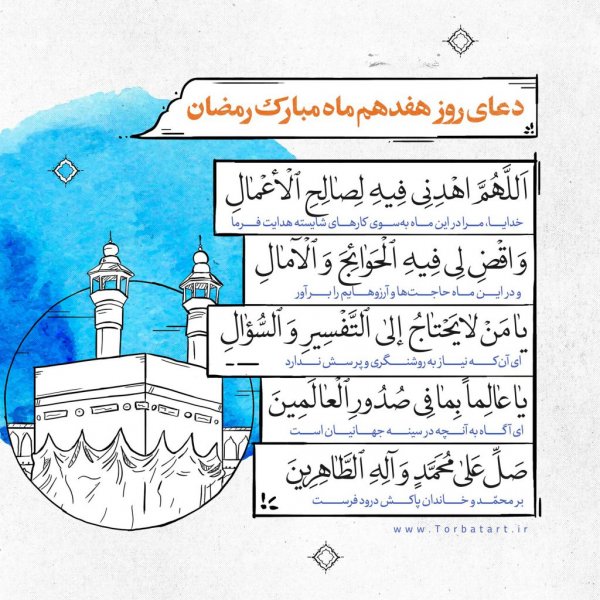 دعای روز هفدهم ماه مبارک رمضان
اَللَّهُمَّ اهْدِنِی فِیهِ لِصَالِحِ الْأَعْمَالِ
خدایا، مرا در این ماه به‌سوی کارهای شایسته هدایت فرما
وَ اقْضِ لِی فِیهِ الْحَوَائِجَ وَ الْآمَالِ
و در این ماه حاجت‌ها و آرزوهایم را برآور
یَا مَنْ لَا یَحْتَاجُ إِلَی التَّفْسِیرِ وَ السُّؤَالِ
ای آن‌که نیاز به روشنگری و پرسش ندارد
یَا عَالِماً بِمَا فِی صُدُورِ الْعَالَمِینَ
ای آگاه به آنچه در سینه جهانیان است
صَلِّ عَلَی مُحَمَّدٍ وَ آلِهِ الطَّاهِرِینَ
بر محمّد و خاندان پاکش درود فرست
www.Torbatart.ir